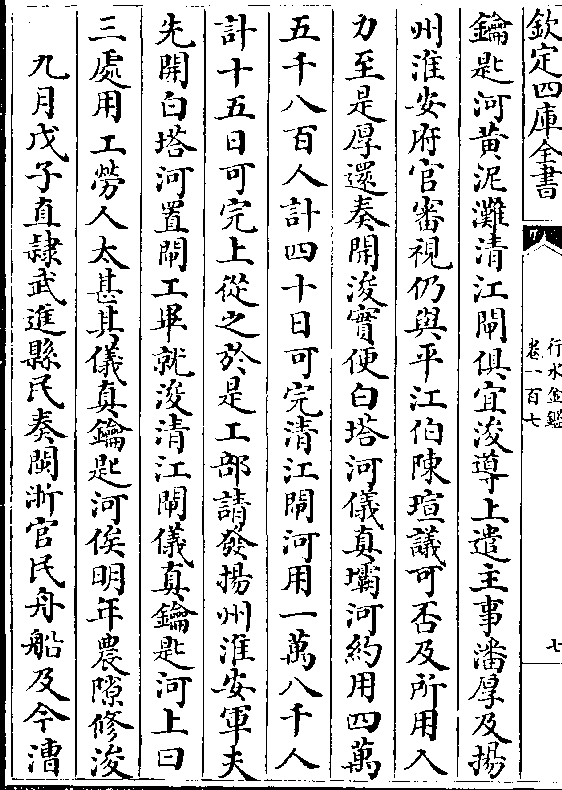 欽定四庫全書
行水金鑑
卷一百七
七
鑰匙河黃泥灘清江閘俱宜浚導上遣主事潘厚及揚
州淮安府官審視仍與平江伯陳瑄議可否及所用人
力至是厚還奏開浚實便白塔河儀真壩河約用四萬
五千八百人計四十日可完清江閘河用一萬八千人
計十五日可完上從之於是工部請發揚州淮安軍夫
先開白塔河置閘工畢就浚清江閘儀真鑰匙河上曰
三處用工勞人太甚其儀真鑰匙河俟明年農隙修浚
九月戊子直隸武進縣民奏閩浙官民舟船及今漕